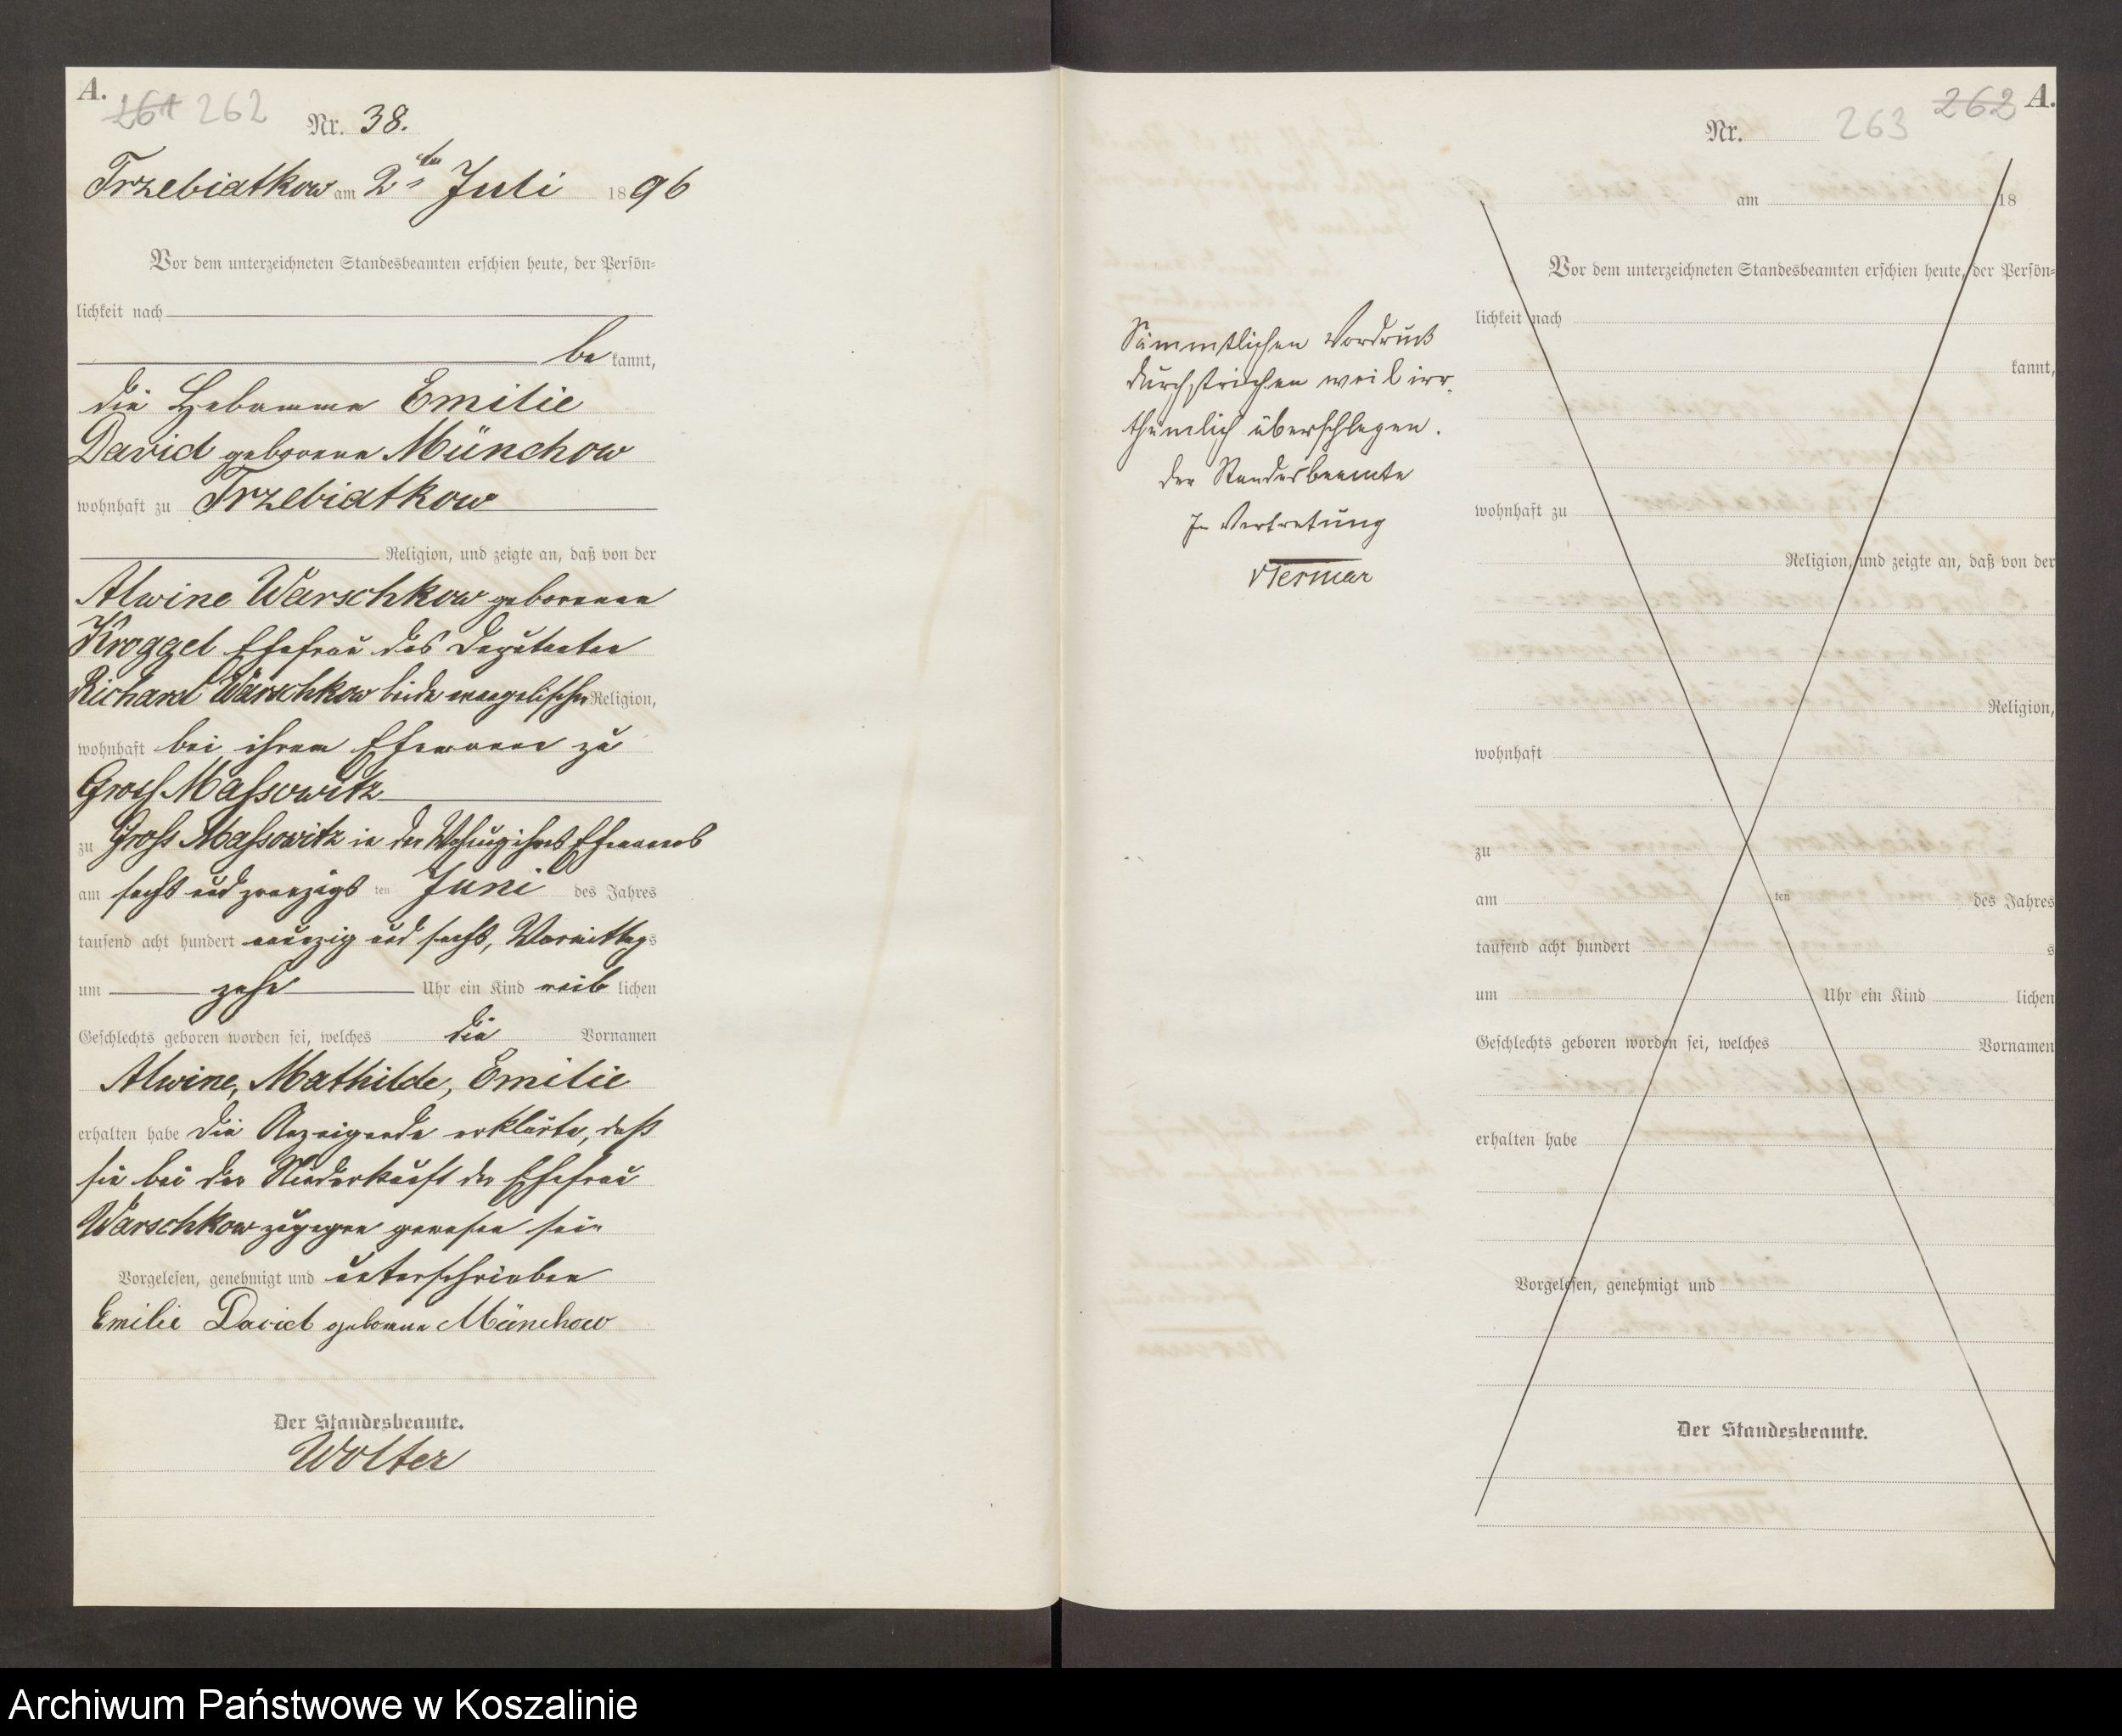 A.
261 262
Nr. 38.
Trzebiatkow am 2ten Juli 1896
Vor dem unterzeichneten Standesbeamten erschien heute, der Persön-
lichkeit nach
be kannt,
die Hebamme Emilie
David geborene Münchow
wohnhaft zu Trzebiatkow
Religion, und zeigte an, daß von der
Alwine Warschkow geborenen
Kroggel Ehefrau des Deputanten
Richard Warschkow beide evangelischer Religion,
wohnhaft bei ihrem Ehemanne zu
Gross Massowitz
zu Gross Massowitz in der Wohnung ihres Ehemanns
am sechs und zwanzigs ten Juni des Jahres
tausend acht hundert neunzig und sechs, Vormittags
um zehn Uhr ein Kind weib lichen
Geschlechts geboren worden sei, welches die Vornamen
Alwine, Mathilde, Emilie
erhalten habe Die Anzeigende erklärte, daß
sie bei der Niederkunft der Ehefrau
Warschkow zugegen gewesen sei.
Vorgelesen, genehmigt und unterschrieben
Emilie David geborene Münchow
Der Standesbeamte.
Wolter
262 A.
Nr. 263
am 18
Vor dem unterzeichneten Standesbeamten erschien heute, der Persön-
lichkeit nach
kannt,
wohnhaft zu
Religion, und zeigte an, daß von der
Religion,
wohnhaft
zu
am ten des Jahres
tausend acht hundert s
um Uhr ein Kind lichen
Geschlechts geboren worden sei, welches Vornamen
erhalten habe
Vorgelesen, genehmigt und
Der Standesbeamte.
Sämmtlichen Vordruck
durchstrichen weil irr-
thümlich überschlagen.
Der Standesbeamte
In Vertretung
Archiwum Państwowe w Koszalinie